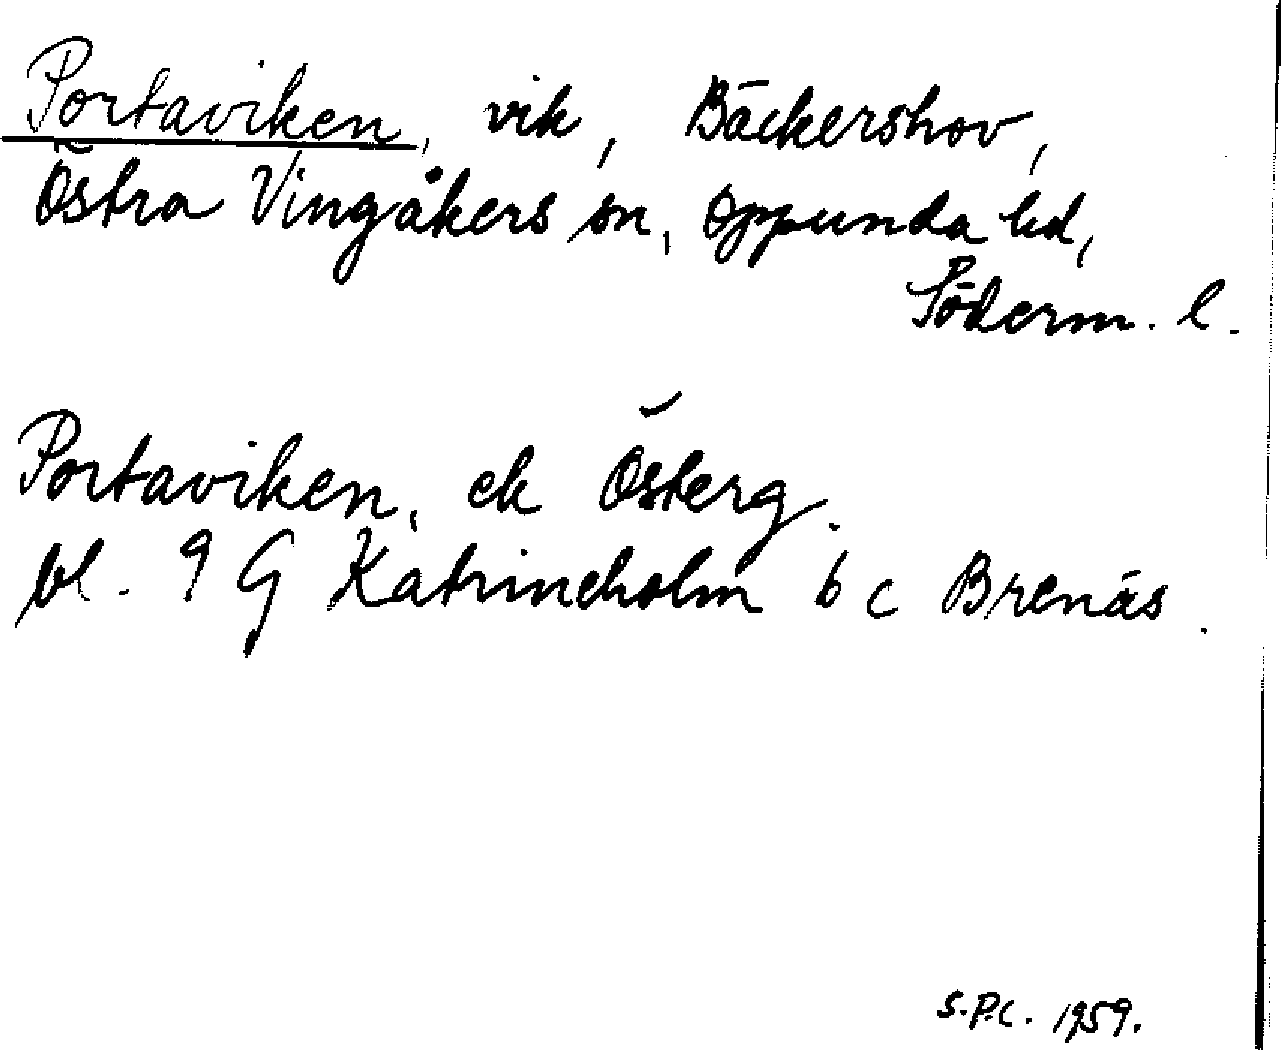 Portaviken, vik, Bäckershov,
Östra Vingåkers sn, Oppunda hd,
Söderm. l.
Portaviken, ek Österg.
bl. 9 G Katrineholm 6 c Brenäs.
S.P.C. 1959.